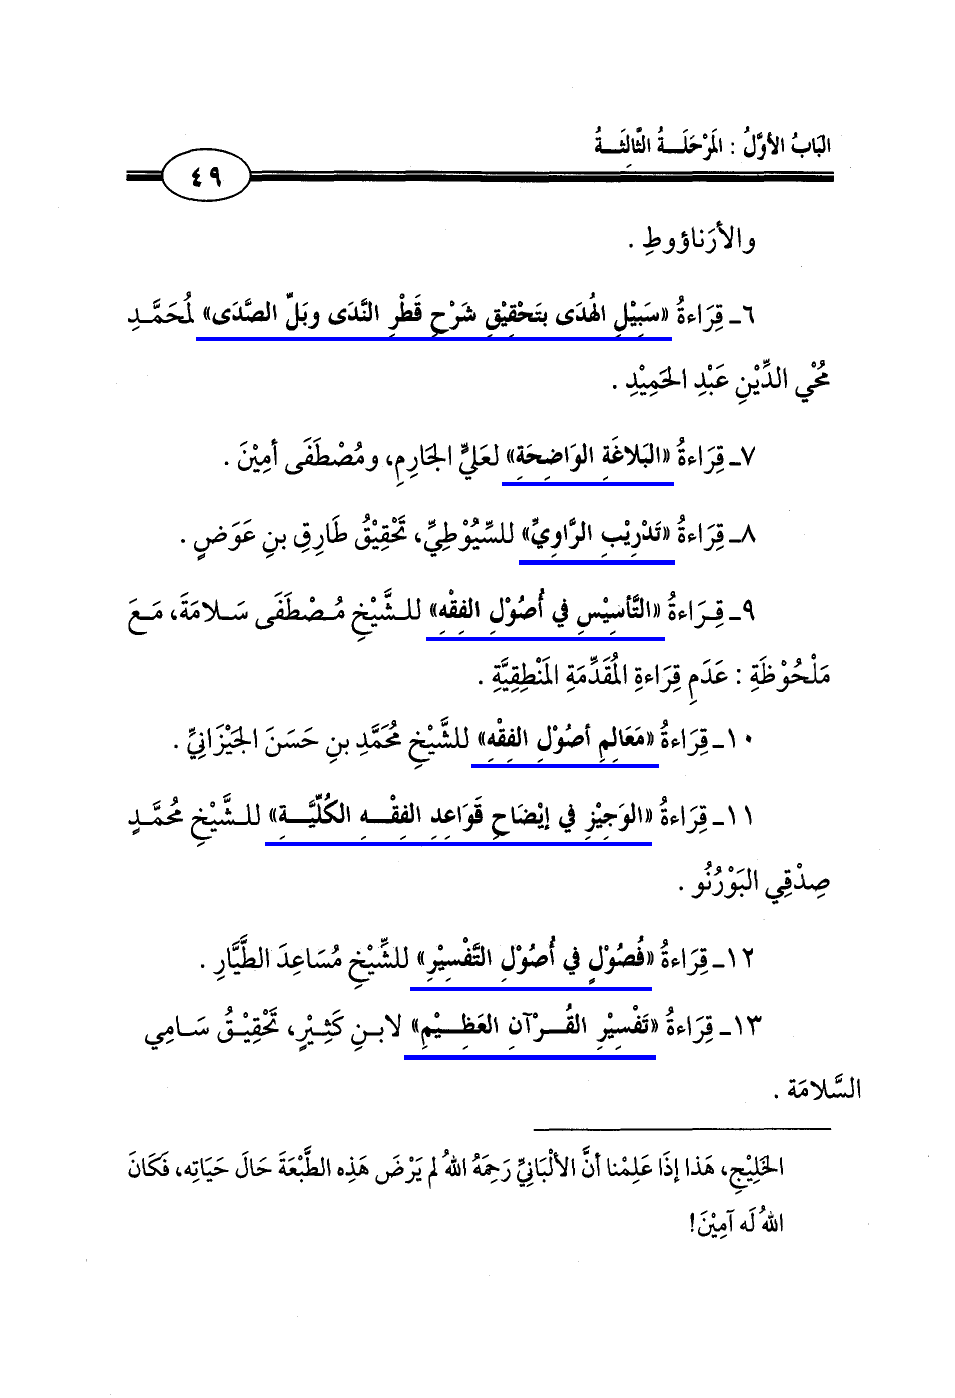 البَابُ الأوَّلُ : المَرْحَلَةُ الثَّالِثَةُ
٤٩
والأرَناؤوطِ .
٦ـ قِرَاءةُ «سَبِيْلِ الهُدَى بتَحْقِيْقِ شَرْحِ قَطْرِ النَّدَى وبَلِّ الصَّدَى» لمُحَمَّدِ
مُحْي الدِّيْنِ عَبْدِ الحَمِيْدِ .
٧ـ قِرَاءةُ «البَلاغَةِ الوَاضِحَةِ» لعَليٍّ الجَارِمِ، ومُصْطَفَى أمِيْنَ .
٨ـ قِرَاءةُ «تَدْرِيْبِ الرَّاوِيِّ» للسِّيُوْطِيِّ، تَحْقِيْقُ طَارِقِ بنِ عَوَضٍ .
٩ـ قِرَاءةُ «التَّأسِيْسِ في أُصُوْلِ الفِقْهِ» للشَّيْخِ مُصْطَفَى سَلامَةَ، مَعَ
مَلْحُوْظَةِ : عَدَمِ قِرَاءةِ المُقَدِّمَةِ المَنْطِقِيَّةِ .
١٠ـ قِرَاءةُ «مَعَالِمِ أصُوْلِ الفِقْهِ» للشَّيْخِ مُحَمَّدِ بنِ حَسَنَ الجَيْزَانيِّ .
١١ـ قِرَاءةُ «الوَجِيْزِ في إيْضَاحِ قَوَاعِدِ الفِقْهِ الكُلِّيَّةِ» للشَّيْخِ مُحَمَّدٍ
صِدْقِي البَوْرُنُو .
١٢ـ قِرَاءةُ «فُصُوْلٍ في أُصُوْلِ التَّفْسِيْرِ» للشِّيْخِ مُسَاعِدَ الطَّيَّارِ .
١٣ـ قِرَاءةُ «تَفْسِيْرِ القُرْآنِ العَظِيْمِ» لابنِ كَثِيْرٍ، تَحْقِيْقُ سَامِي
السَّلامَة .
الخَلِيْجِ، هَذا إذَا عَلِمْنا أنَّ الألْبَانيَّ رَحِمَهُ اللهُ لم يَرْضَ هَذِه الطَّبْعَةَ حَالَ حَيَاتِه، فَكَانَ
اللهُ لَه آمِيْنَ!